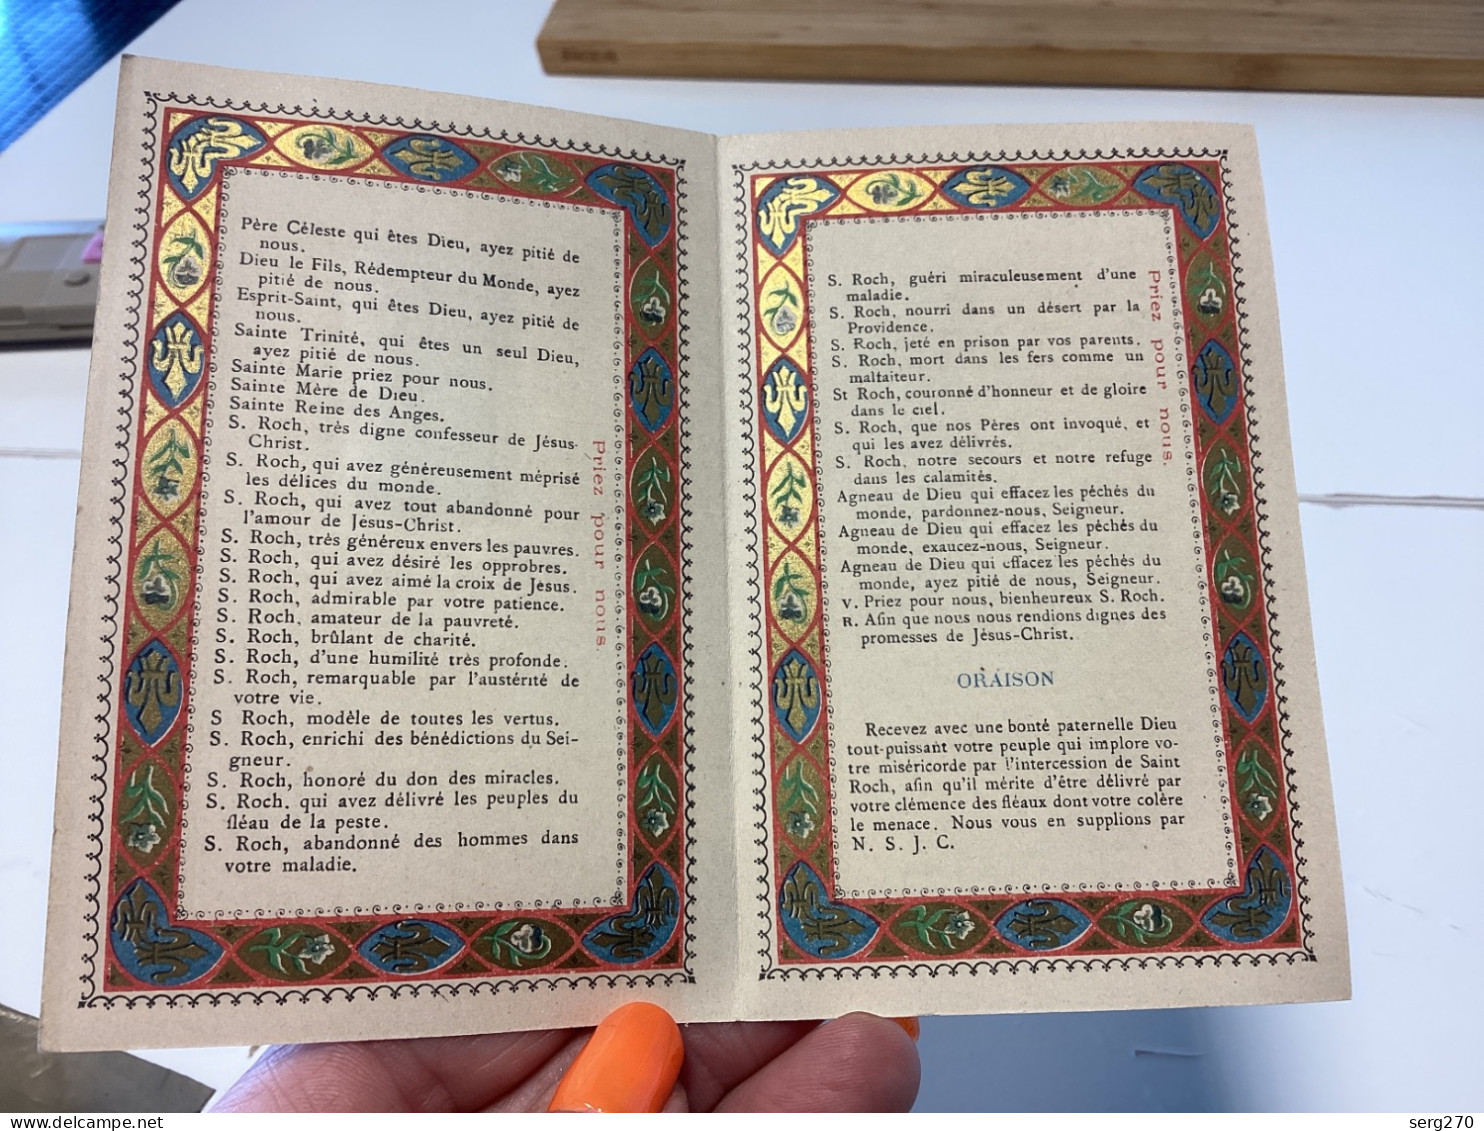 Père Céleste qui êtes Dieu, ayez pitié de
nous.
Dieu le Fils, Rédempteur du Monde, ayez
pitié de nous.
Esprit-Saint, qui êtes Dieu, ayez pitié de
nous.
Sainte Trinité, qui êtes un seul Dieu,
ayez pitié de nous.
Sainte Marie priez pour nous.
Sainte Mère de Dieu.
Sainte Reine des Anges.
S. Roch, très digne confesseur de Jésus-
Christ.
S. Roch, qui avez généreusement méprisé
les délices du monde.
S. Roch, qui avez tout abandonné pour
l'amour de Jésus-Christ.
S. Roch, très généreux envers les pauvres.
S. Roch, qui avez désiré les opprobres.
S. Roch, qui avez aimé la croix de Jésus.
S. Roch, admirable par votre patience.
S. Roch, amateur de la pauvreté.
S. Roch, brûlant de charité.
S. Roch, d'une humilité très profonde.
S. Roch, remarquable par l'austérité de
votre vie.
S Roch, modèle de toutes les vertus.
S. Roch, enrichi des bénédictions du Sei-
gneur.
S. Roch, honoré du don des miracles.
S. Roch. qui avez délivré les peuples du
fléau de la peste.
S. Roch, abandonné des hommes dans
votre maladie.
Priez pour nous.
S. Roch, guéri miraculeusement d'une
maladie.
S. Roch, nourri dans un désert par la
Providence.
S. Roch, jeté en prison par vos parents.
S. Roch, mort dans les fers comme un
malfaiteur.
St Roch, couronné d'honneur et de gloire
dans le ciel.
S. Roch, que nos Pères ont invoqué, et
qui les avez délivrés.
S. Roch, notre secours et notre refuge
dans les calamités.
Priez pour nous.
Agneau de Dieu qui effacez les péchés du
monde, pardonnez-nous, Seigneur.
Agneau de Dieu qui effacez les péchés du
monde, exaucez-nous, Seigneur.
Agneau de Dieu qui effacez les péchés du
monde, ayez pitié de nous, Seigneur.
V. Priez pour nous, bienheureux S. Roch.
R. Afin que nous nous rendions dignes des
promesses de Jésus-Christ.
ORAISON
Recevez avec une bonté paternelle Dieu
tout-puissant votre peuple qui implore vo-
tre miséricorde par l'intercession de Saint
Roch, afin qu'il mérite d'être délivré par
votre clémence des fléaux dont votre colère
le menace. Nous vous en supplions par
N. S. J. C.
www.delcampe.net
serg270